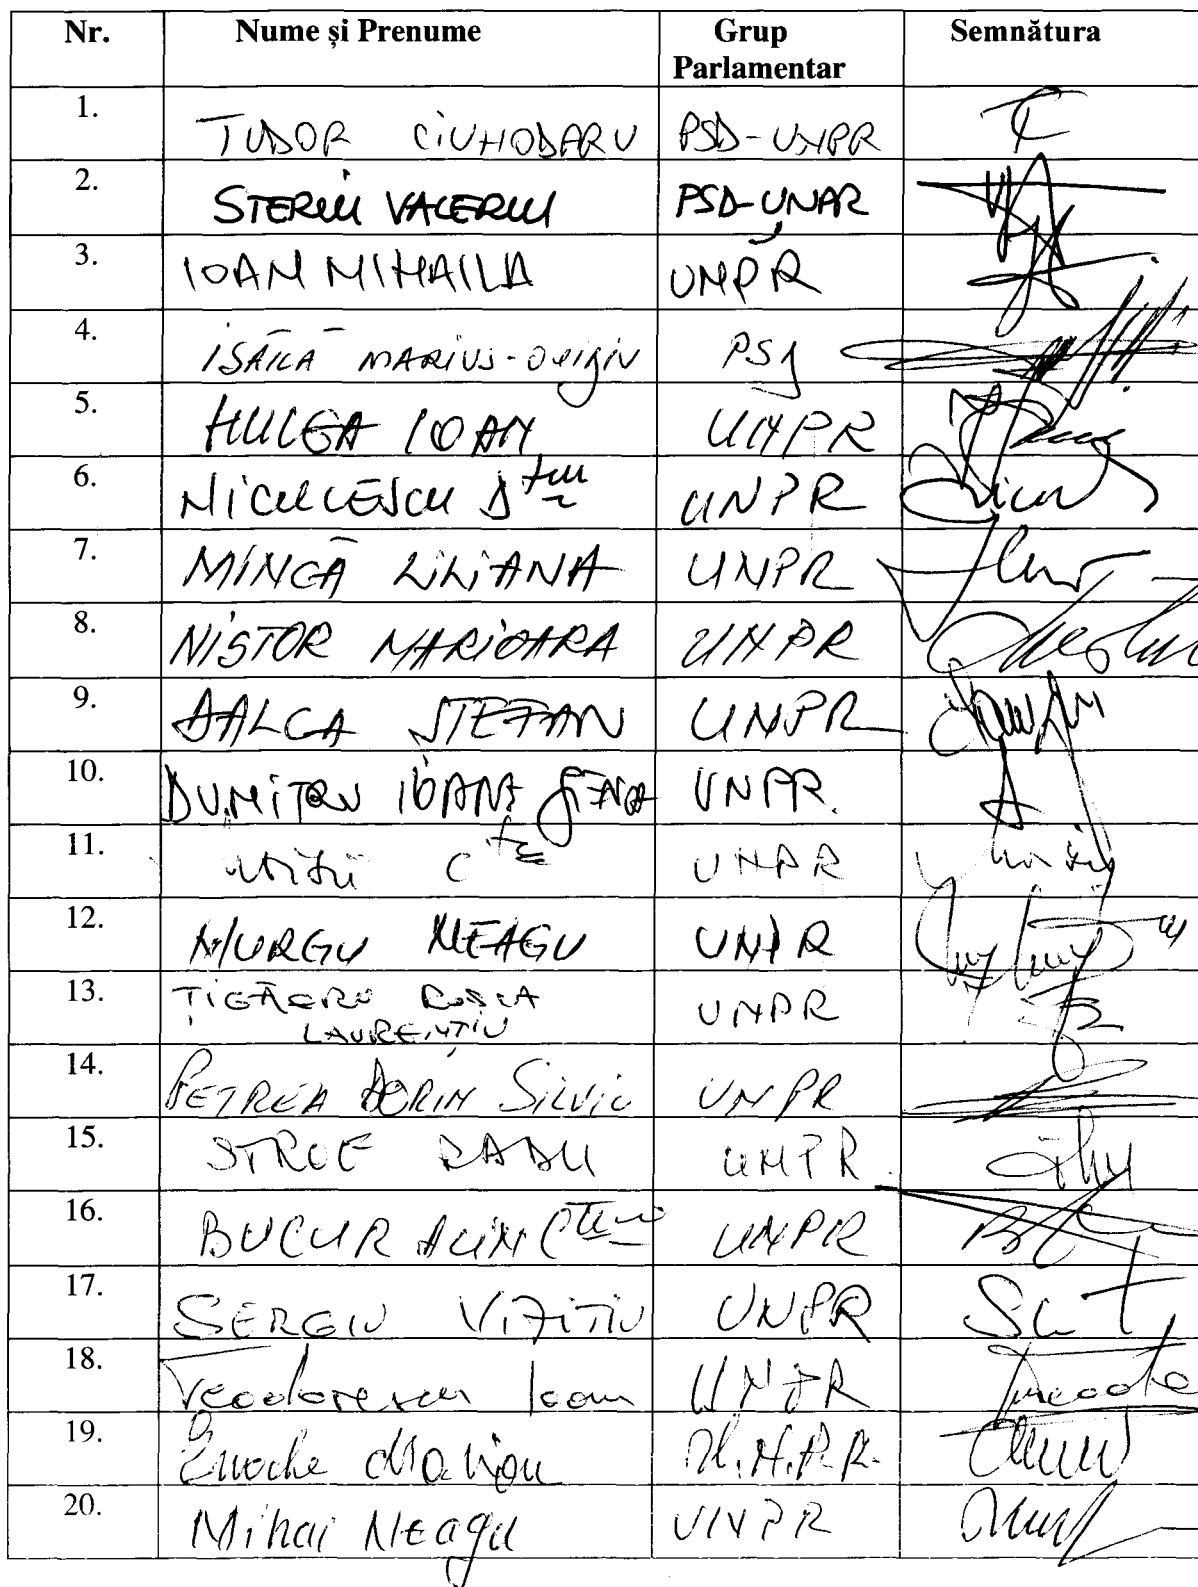 Nr. Nume și Prenume Grup Parlamentar Semnătura
1. TUDOR CIUHODARU PSD-UNPR
2. STERIU VALERIU PSD-UNPR
3. IOAN MIHAILA UNPR
4. ISĂILĂ MARIUS-OVIDIU PSD
5. HULEA IOAN UNPR
6. NICULESCU D-tru UNPR
7. MINCĂ LILIANA UNPR
8. NISTOR MARIOARA UNPR
9. DALCA ȘTEFAN UNPR
10. DUMITRU IOANA UNPR.
11. UNPR
12. MURGU NEAGU UNPR
13. ȚIGĂERU ROȘCA
LAURENȚIU UNPR
14. PETREA DORIN Silviu UNPR
15. STROE RADU UNPR
16. BUCUR ALIN UNPR
17. SERGIU VIZITIU UNPR
18. Teodorescu Ioan UNPR
19. Enache Marian U.N.P.R.
20. Mihai Neagu UNPR